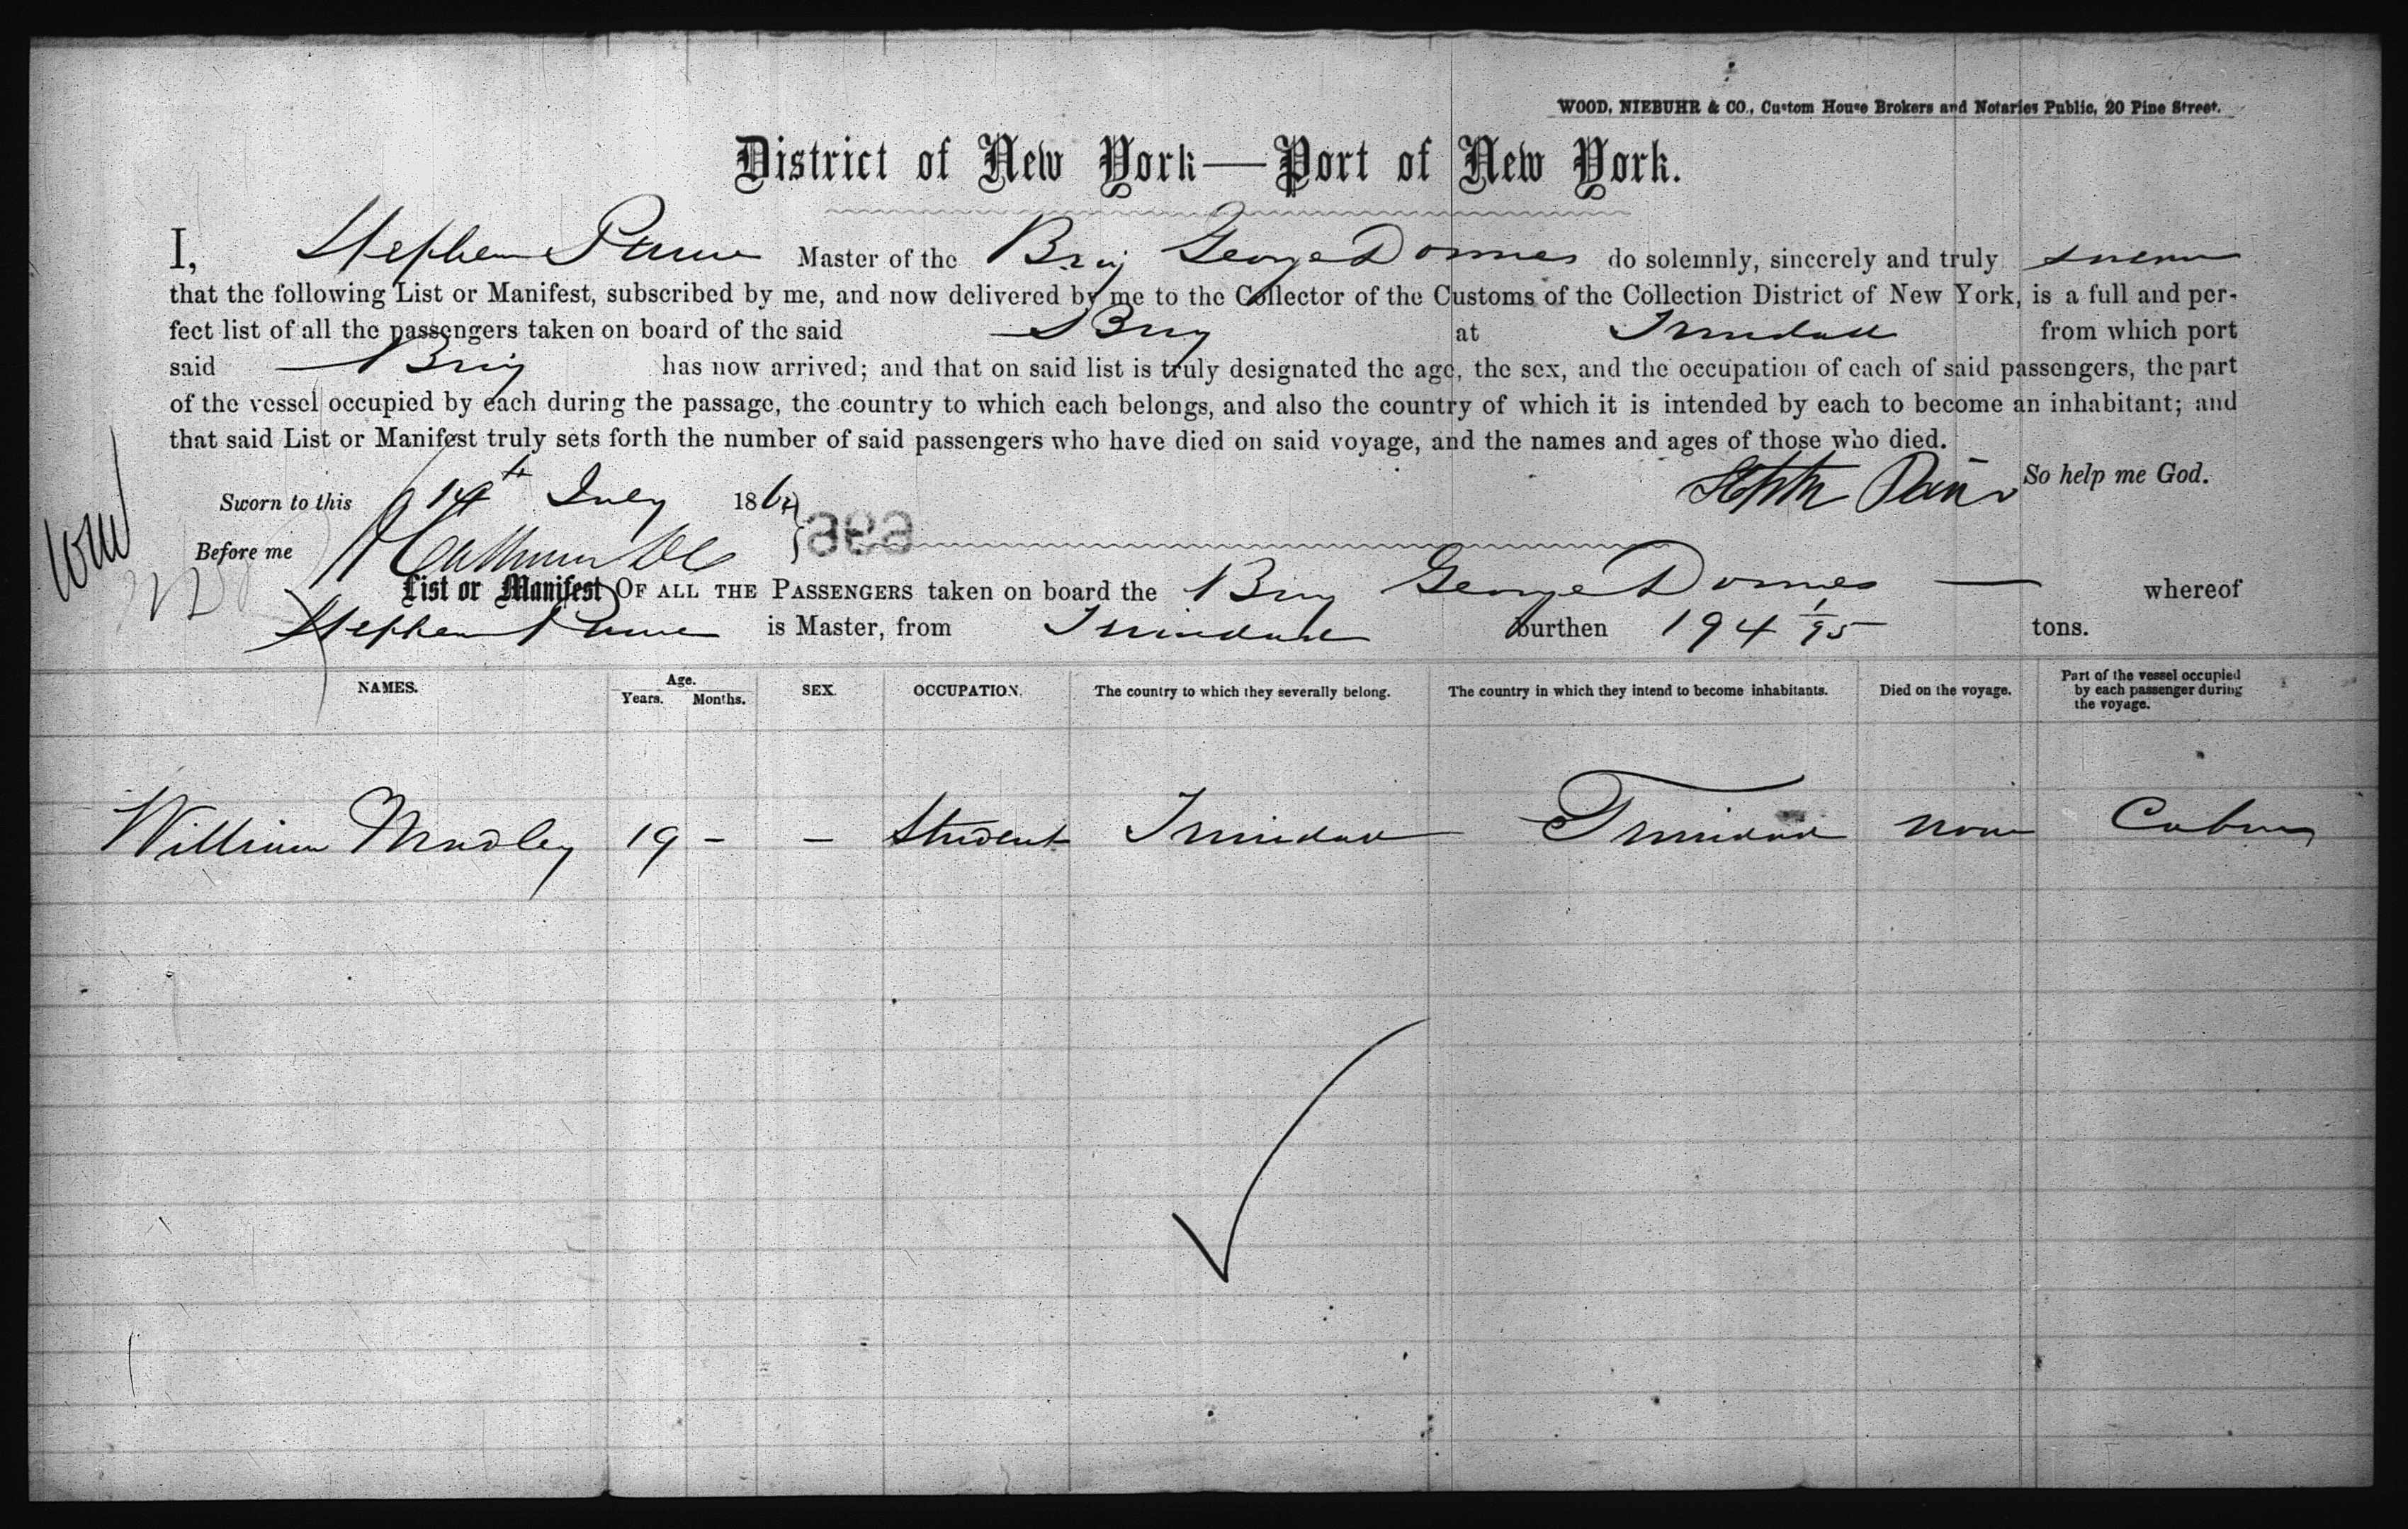 WOOD, NIEBUHR & CO., Custom House Brokers and Notaries Public, 20 Pine Street.
District of New York—Port of New York.
I, Stephen Master of the Brig George Downes do solemnly, sincerely and truly swear
that the following List or Manifest, subscribed by me, and now delivered by me to the Collector of the Customs of the Collection District of New York, is a full and per-
fect list of all the passengers taken on board of the said Brig at Trinidad from which port
said Brig has now arrived; and that on said list is truly designated the age, the sex, and the occupation of each of said passengers, the part
of the vessel occupied by each during the passage, the country to which each belongs, and also the country of which it is intended by each to become an inhabitant; and
that said List or Manifest truly sets forth the number of said passengers who have died on said voyage, and the names and ages of those who died.
So help me God.
Sworn to this July 186
Before me
List or Manifest OF ALL THE PASSENGERS taken on board the Brig George Downes — whereof
Stephen is Master, from Trinidad burthen 194 1/95 tons.
NAMES. Age. Years. Months. SEX. OCCUPATION. The country to which they severally belong. The country in which they intend to become inhabitants. Died on the voyage. Part of the vessel occupied by each passenger during the voyage.
William 19 - - Student Trinidad Trinidad none Cabin